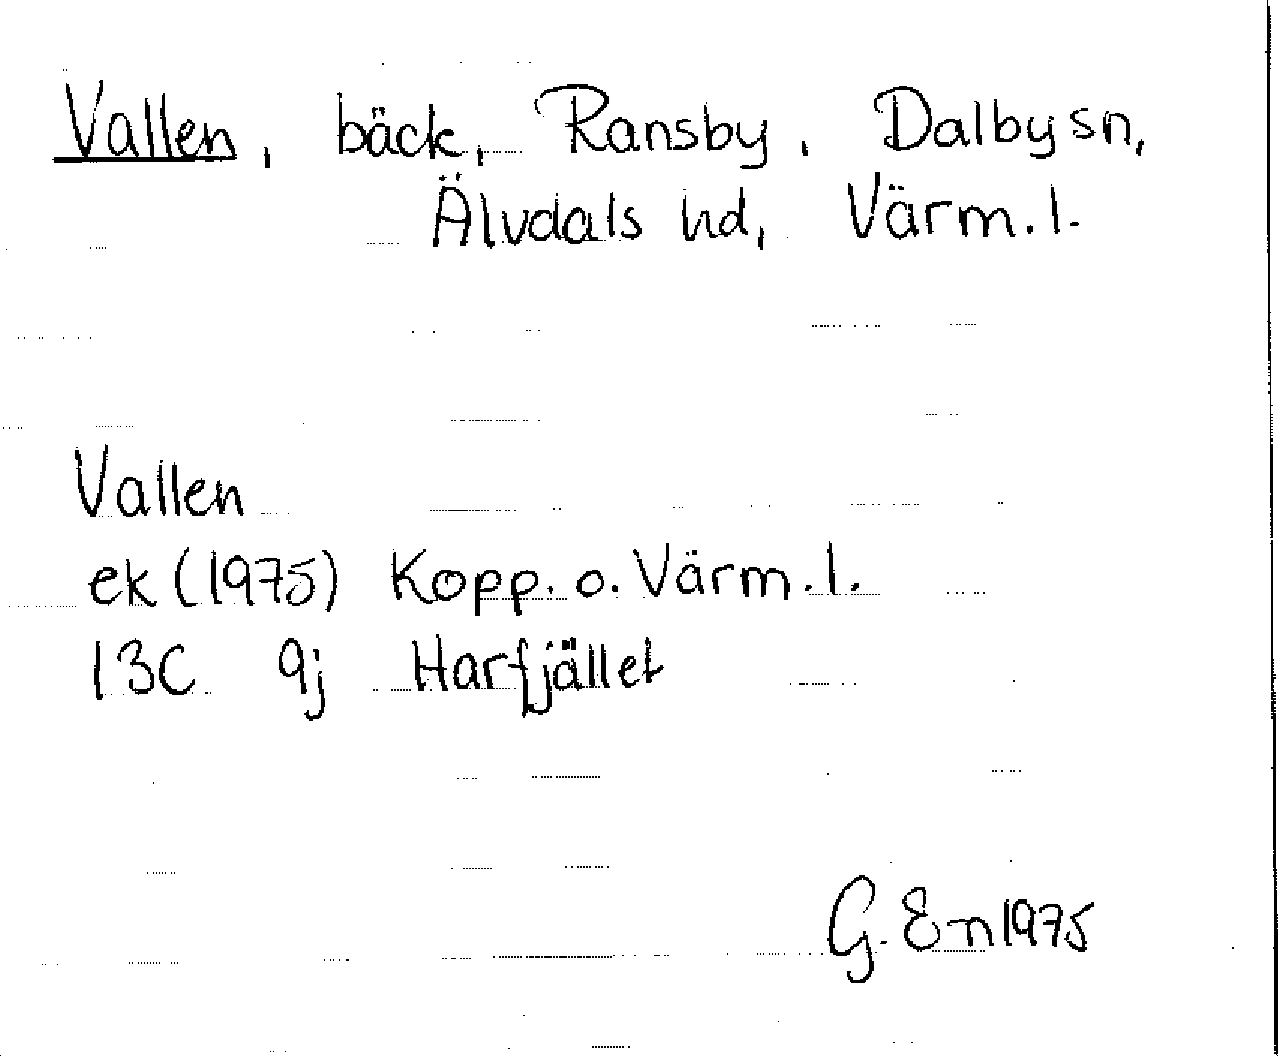 Vallen, bäck, Ransby, Dalby sn,
Älvdals hd, Värm. l.
Vallen
ek (1975) Kopp. o. Värm. l.
13C 9j Harfjället
G. En 1975